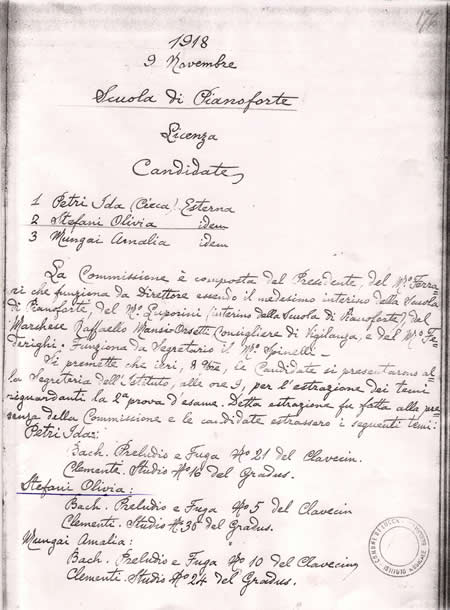 176
1918
9 Novembre
Scuola di Pianoforte
Licenza
Candidate
1 Petri Ida (Cieca) Esterna
2 Stefani Olivia idem
3 Mungai Amalia idem
La Commissione è composta del Presidente, del Mº Ferra-
ri che funziona da Direttore essendo il medesimo interino della Scuola
di Pianoforte, del Mº Luporini (interino della Scuola di Pianoforte) dal
Marchese Raffaello Mansi Orsetti Consigliere di Vigilanza, e del Mº Fe-
derighi. Funziona da Segretario il Mº Spinelli -
Si premette che ieri, 8 9bre, le Candidate si presentarono al-
la Segreteria dell'Istituto, alle ore 9, per l'estrazione dei temi
riguardanti la 2ª prova d'esame. Detta estrazione fu fatta alla pre-
senza della Commissione e le candidate estrassero i seguenti temi:
Petri Ida:
Bach. Preludio e Fuga Nº 21 del Clavecin.
Clemente. Studio Nº 16 del Gradus.
Stefani Olivia:
Bach. Preludio e Fuga Nº 5 del Clavecin
Clementi. Studio N. 36 del Gradus.
Mungai Amalia:
Bach. Preludio e Fuga Nº 10 del Clavecin
Clementi. Studio Nº 24 del Gradus.
COMUNE DI LUCCA